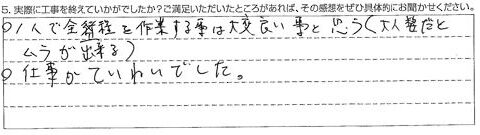 5. 実際に工事を終えていかがでしたか？ご満足いただいたところがあれば、その感想をぜひ具体的にお聞かせください。
○1人で全行程を作業する事は大変良い事と思う(大人数だと
ムラが出来る)
○仕事がていねいでした。